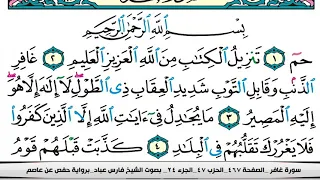 بِسْمِ ٱللَّهِ ٱلرَّحْمَٰنِ ٱلرَّحِيمِ
حمٓ ١ تَنزِيلُ ٱلْكِتَٰبِ مِنَ ٱللَّهِ ٱلْعَزِيزِ ٱلْعَلِيمِ ٢ غَافِرِ
ٱلذَّنۢبِ وَقَابِلِ ٱلتَّوْبِ شَدِيدِ ٱلْعِقَابِ ذِى ٱلطَّوْلِ لَآ إِلَٰهَ إِلَّا هُوَ
إِلَيْهِ ٱلْمَصِيرُ ٣ مَا يُجَٰدِلُ فِىٓ ءَايَٰتِ ٱللَّهِ إِلَّا ٱلَّذِينَ كَفَرُوا۟
فَلَا يَغْرُرْكَ تَقَلُّبُهُمْ فِى ٱلْبِلَٰدِ ٤ كَذَّبَتْ قَبْلَهُمْ قَوْمُ
سورة غافر _الصفحة ٤٦٧_ الحزب ٤٧ _الجزء ٢٤_ بصوت الشيخ فارس عباد_ برواية حفص عن عاصم